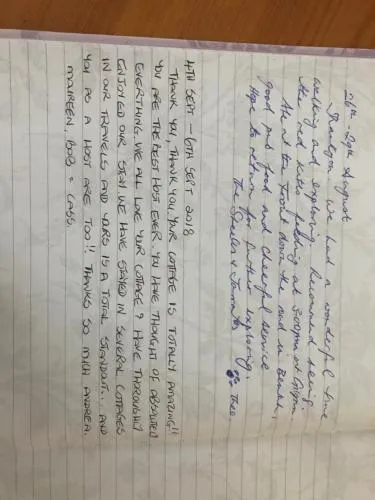 26th - 29th August
we had a wonderful time
walking and exploring. Recommend seeing
the red kites feeding at 3.00pm at
the at the Ford down the road in
good pub food and cheerful service
Hope to return for further exploring.
The &
4TH SEPT - 6TH SEPT 2018
THANK YOU, THANK YOU YOUR COTTAGE IS TOTALLY AMAZING!!
YOU ARE THE BEST HOST EVER YOU HAVE THOUGHT OF ABSOLUTED
EVERYTHING. WE ALL LOVE YOUR COTTAGE & HAVE THOROUGHLY
ENJOYED OUR STAY WE HAVE STAYED IN SEVERAL COTTAGES
IN OUR TRAVELS AND YOURS IS A TOTAL STANDOUT... AND
YOU AS A HOST ARE TOO!! THANKS SO MUCH ANDREA.
MAUREEN, BOB & CASS.